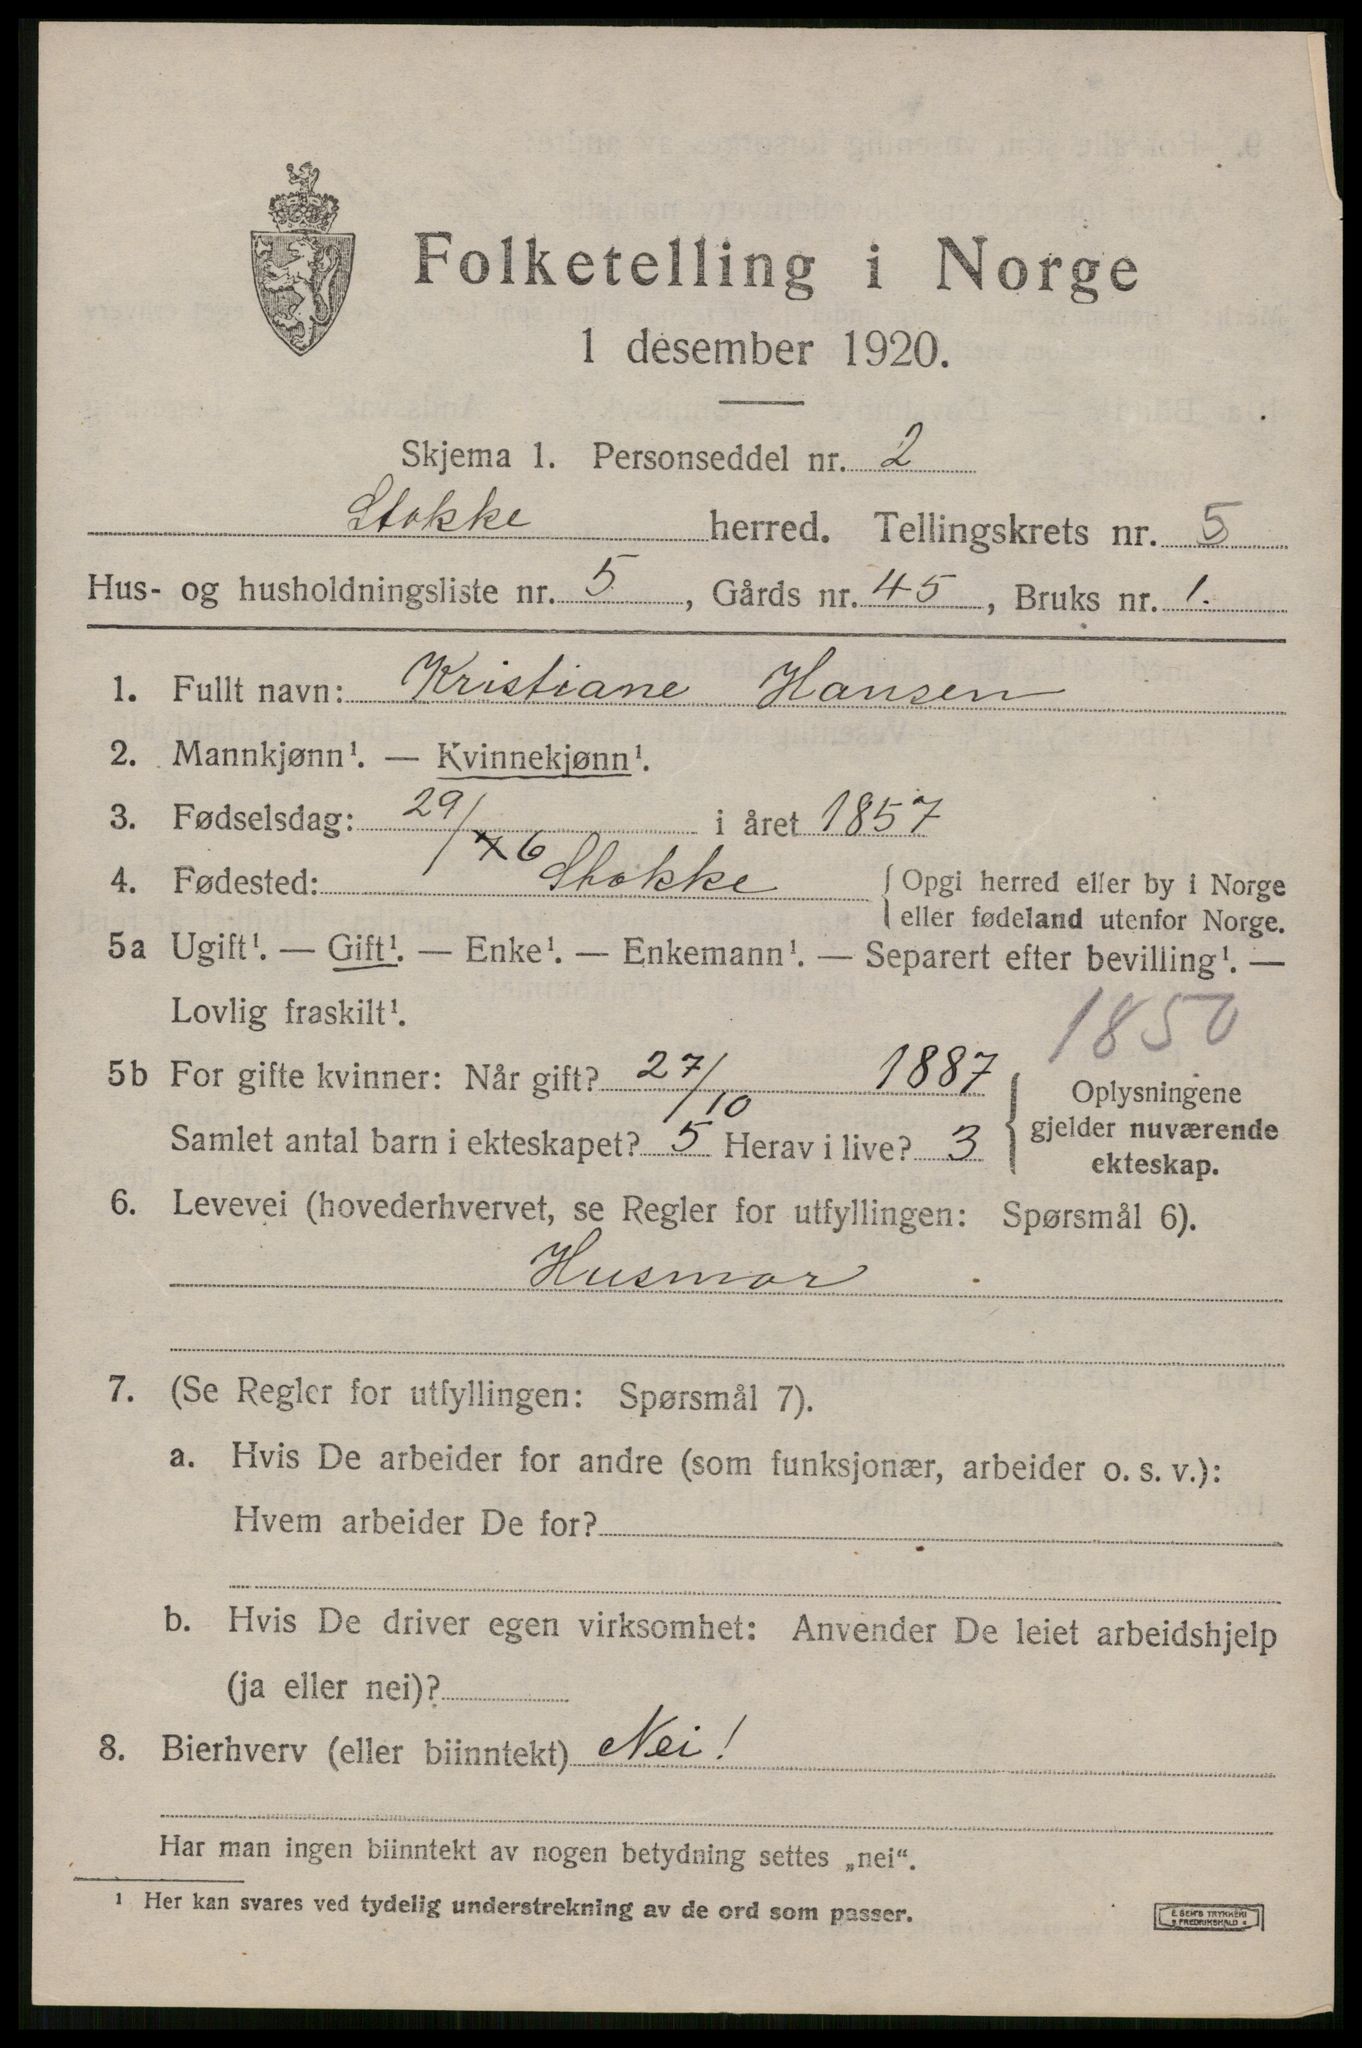 Folketelling i Norge
1 desember 1920.
Skjema 1. Personseddel nr. 2
Stokke herred. Tellingskrets nr. 5
Hus- og husholdningsliste nr. 5, Gårds nr. 45, Bruks nr. 1.
1. Fullt navn: Kristiane Hansen
2. Mannkjønn¹. — Kvinnekjønn¹.
3. Fødselsdag: 29/6 i året 1857
4. Fødested: Stokke { Opgi herred eller by i Norge
eller fødeland utenfor Norge.
5a Ugift¹. — Gift¹. — Enke¹. — Enkemann¹. — Separert efter bevilling¹. —
Lovlig fraskilt¹.
1850
5b For gifte kvinner: Når gift? 27/10 1887
Samlet antal barn i ekteskapet? 5 Herav i live? 3
{ Oplysningene
gjelder nuværende
ekteskap.
6. Levevei (hovederhvervet, se Regler for utfyllingen: Spørsmål 6).
Husmor
7. (Se Regler for utfyllingen: Spørsmål 7).
a. Hvis De arbeider for andre (som funksjonær, arbeider o. s. v.):
Hvem arbeider De for?
b. Hvis De driver egen virksomhet: Anvender De leiet arbeidshjelp
(ja eller nei)?
8. Bierhverv (eller biinntekt) Nei!
Har man ingen biinntekt av nogen betydning settes „nei“.
¹ Her kan svares ved tydelig understrekning av de ord som passer.
E. SEM'S TRYKKERI
FREDRIKSHALD